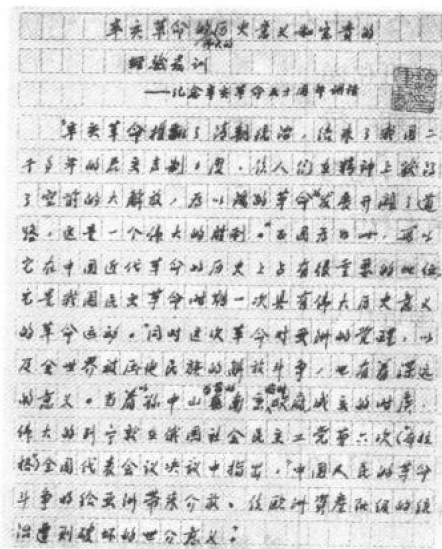 辛亥革命的历史意义和宝贵的
伟大的
经验教训
——纪念辛亥革命五十周年讲话
辛亥革命推翻了清朝统治，结束了我国二
千多年的君主专制制度，使人们在精神上获得
了空前的大解放，为以后的革命发展开辟了道
路，这是一个伟大的胜利。
它在中国近代革命的历史上占有很重要的地位
它是我国民主革命时期一次具有伟大历史意义
的革命运动。同时这次革命对亚洲的觉醒，以
及全世界被压迫民族的解放斗争，也有着深远
的意义。当 孙中山 南京 政府成立的时候，
伟大的列宁就在俄国社会民主工党第六次（布拉
格）全国代表会议决议中指出，“中国人民的革命
斗争的给亚洲带来 解放、使欧洲资产阶级的统
治遭到破坏的世界意义。”